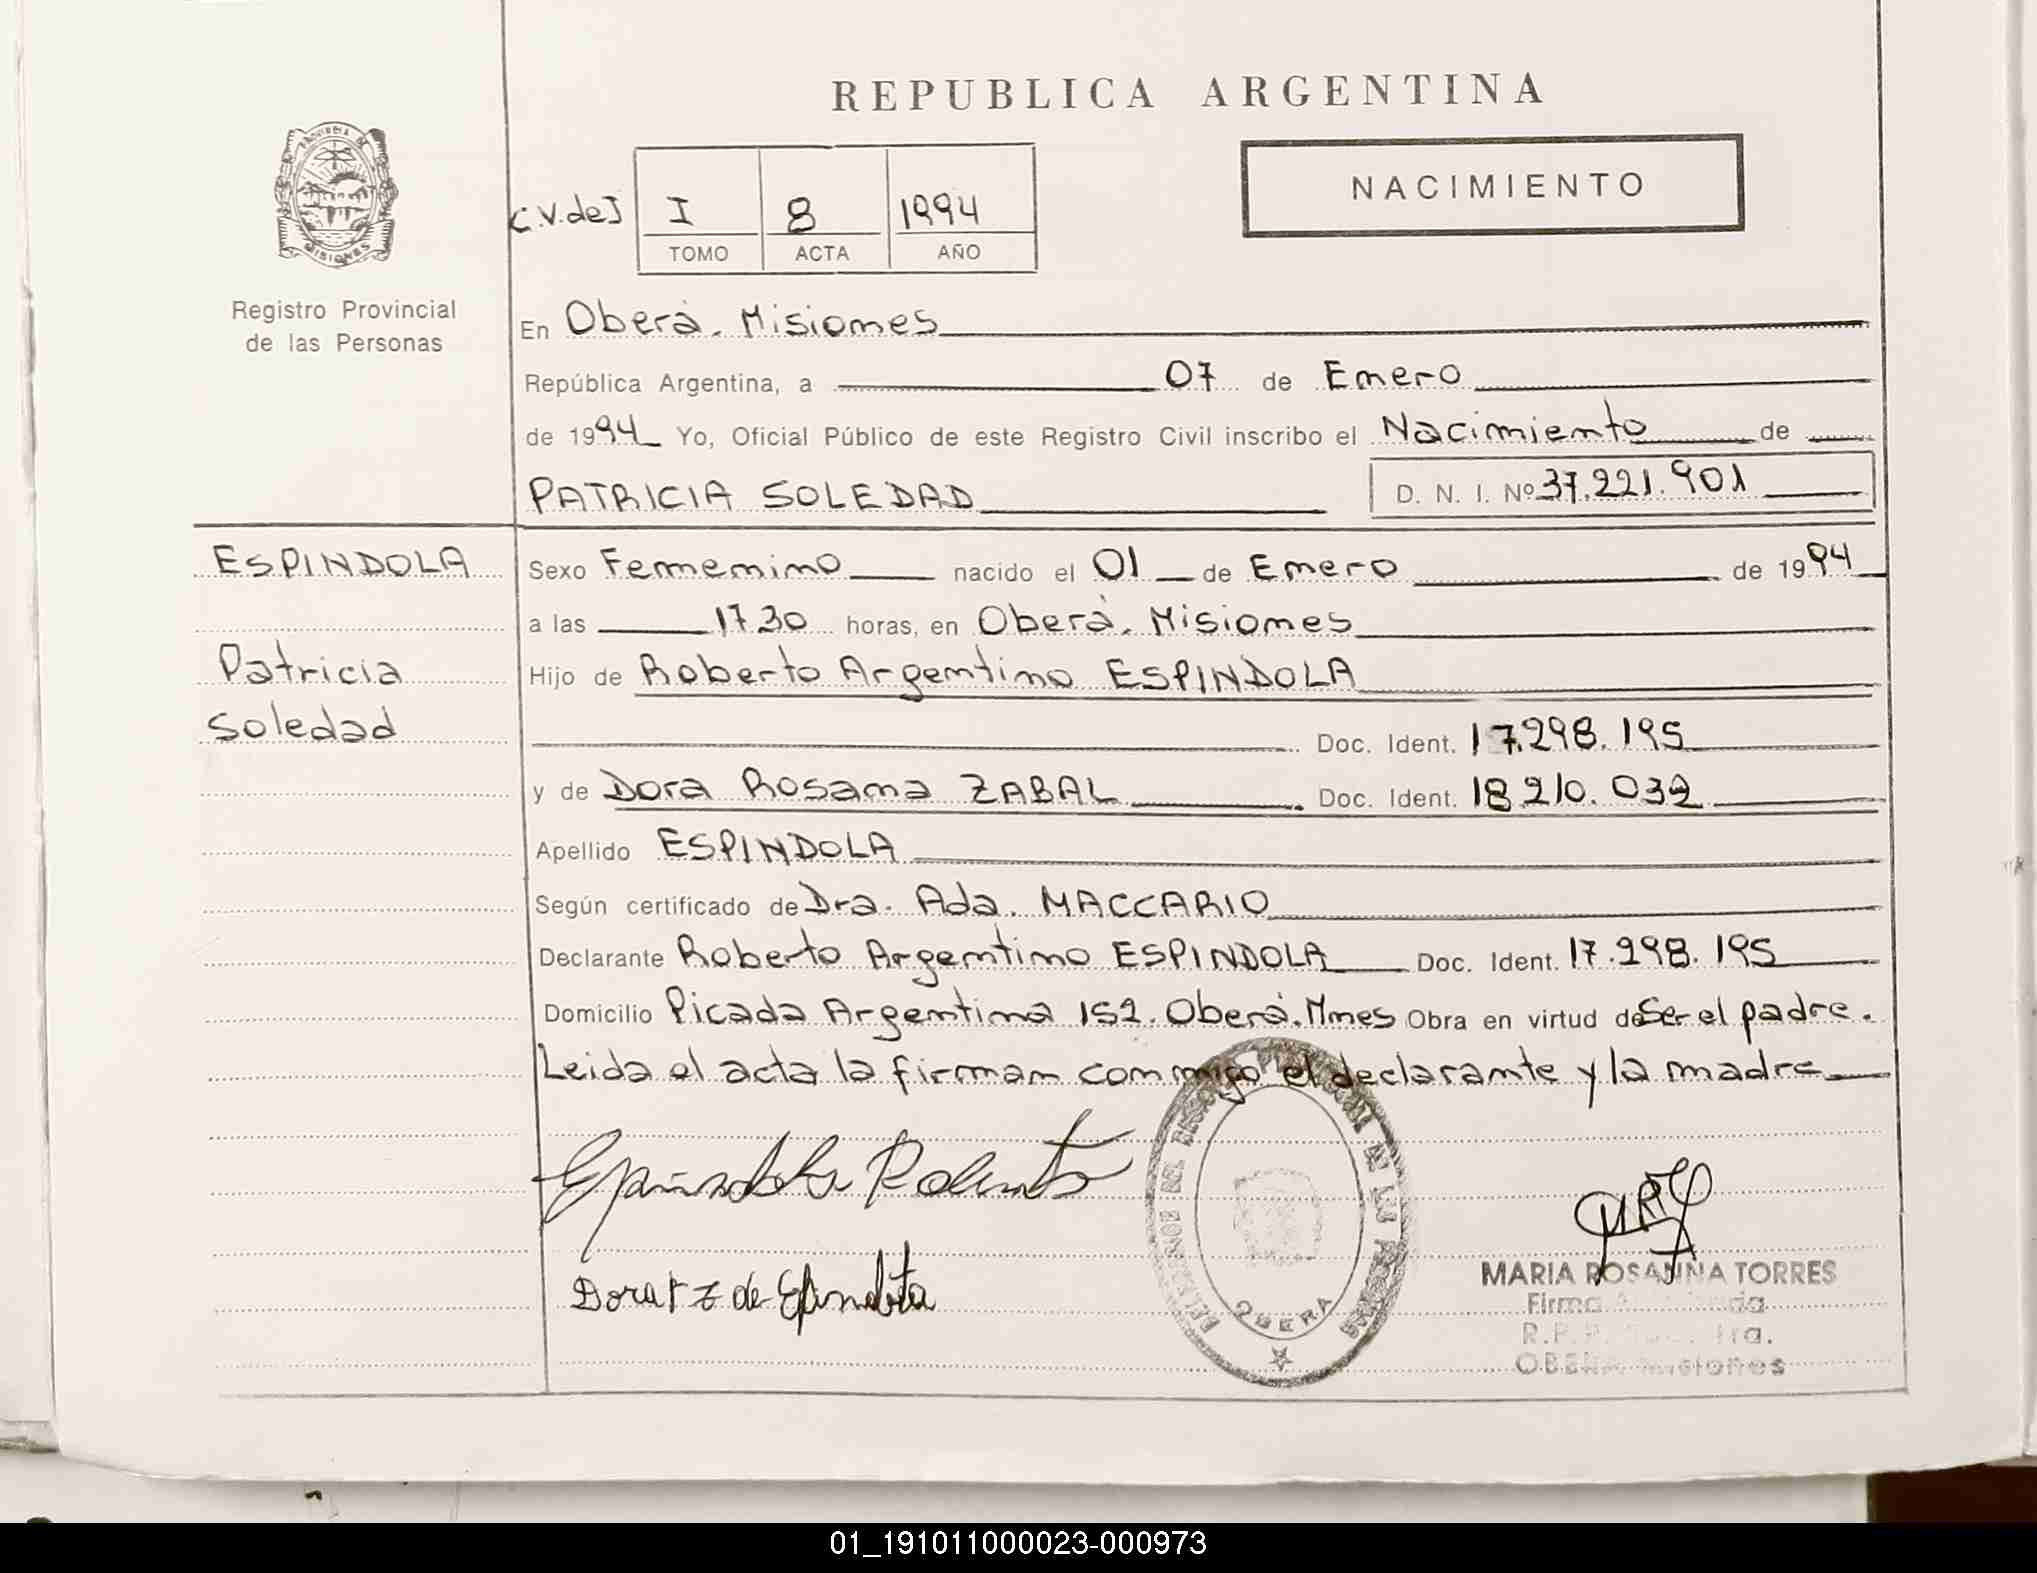 REPUBLICA ARGENTINA
NACIMIENTO
C.V.deJ I 8 1994
TOMO ACTA AÑO
Registro Provincial
de las Personas
En Oberá. Misiones
República Argentina, a 07 de Enero
de 1994 Yo, Oficial Público de este Registro Civil inscribo el Nacimiento de
PATRICIA SOLEDAD D. N. I. Nº 37.221.901
ESPINDOLA
Patricia
Soledad
Sexo Femenino nacido el 01 de Enero de 1994
a las 17.30 horas, en Oberá. Misiones
Hijo de Roberto Argentino ESPINDOLA
Doc. Ident. 17.298.195
y de Dora Rosana ZABAL Doc. Ident. 18.210.032
Apellido ESPINDOLA
Según certificado de Dra. Ada. MACCARIO
Declarante Roberto Argentino ESPINDOLA Doc. Ident. 17.298.195
Domicilio Picada Argentina 152. Oberá. Mnes Obra en virtud de Ser el padre.
Leida el acta la firman conmigo el declarante y la madre
Espindola Roberto
Dora R Z de Espindola
OBERA
MARIA ROSANNA TORRES
Firma
OBERA Misiones
01_191011000023-000973